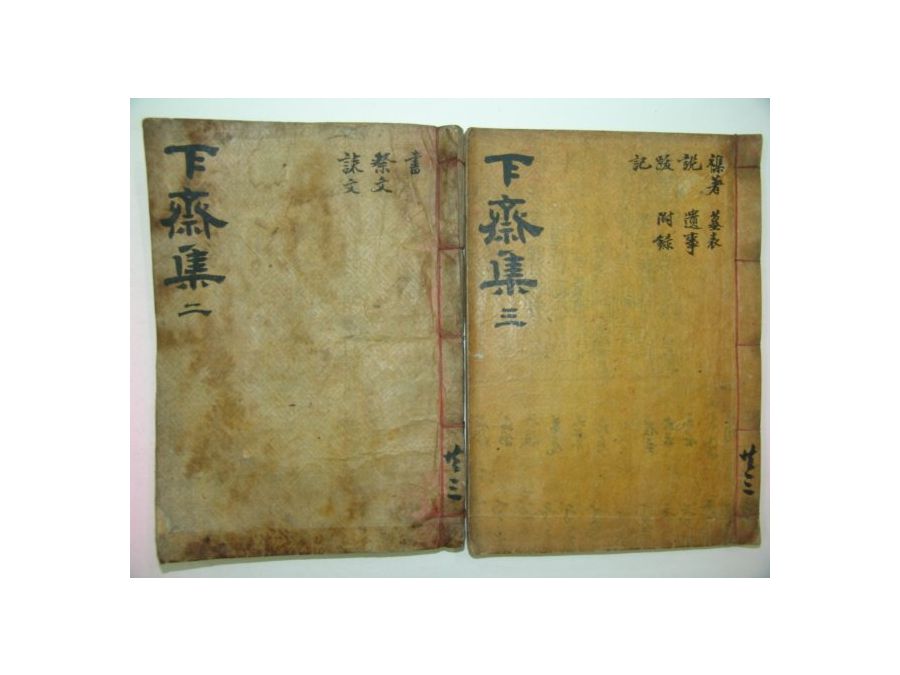 卞齋集 二
書
祭文
誄文
共三
卞齋集 三
襍著 墓表
說 遺事
跋 附錄
記
共三